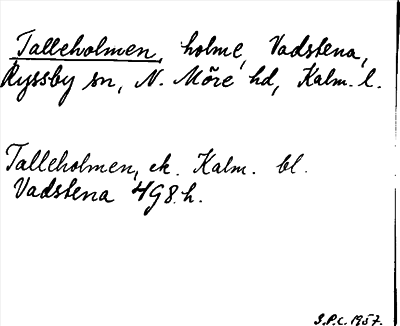 Talleholmen, holme, Vadstena,
Ryssby sn, N. Möre hd, Kalm. l.
Talleholmen, ek. Kalm. bl.
Vadstena 4 G 8.h.
S.P.C. 1957.